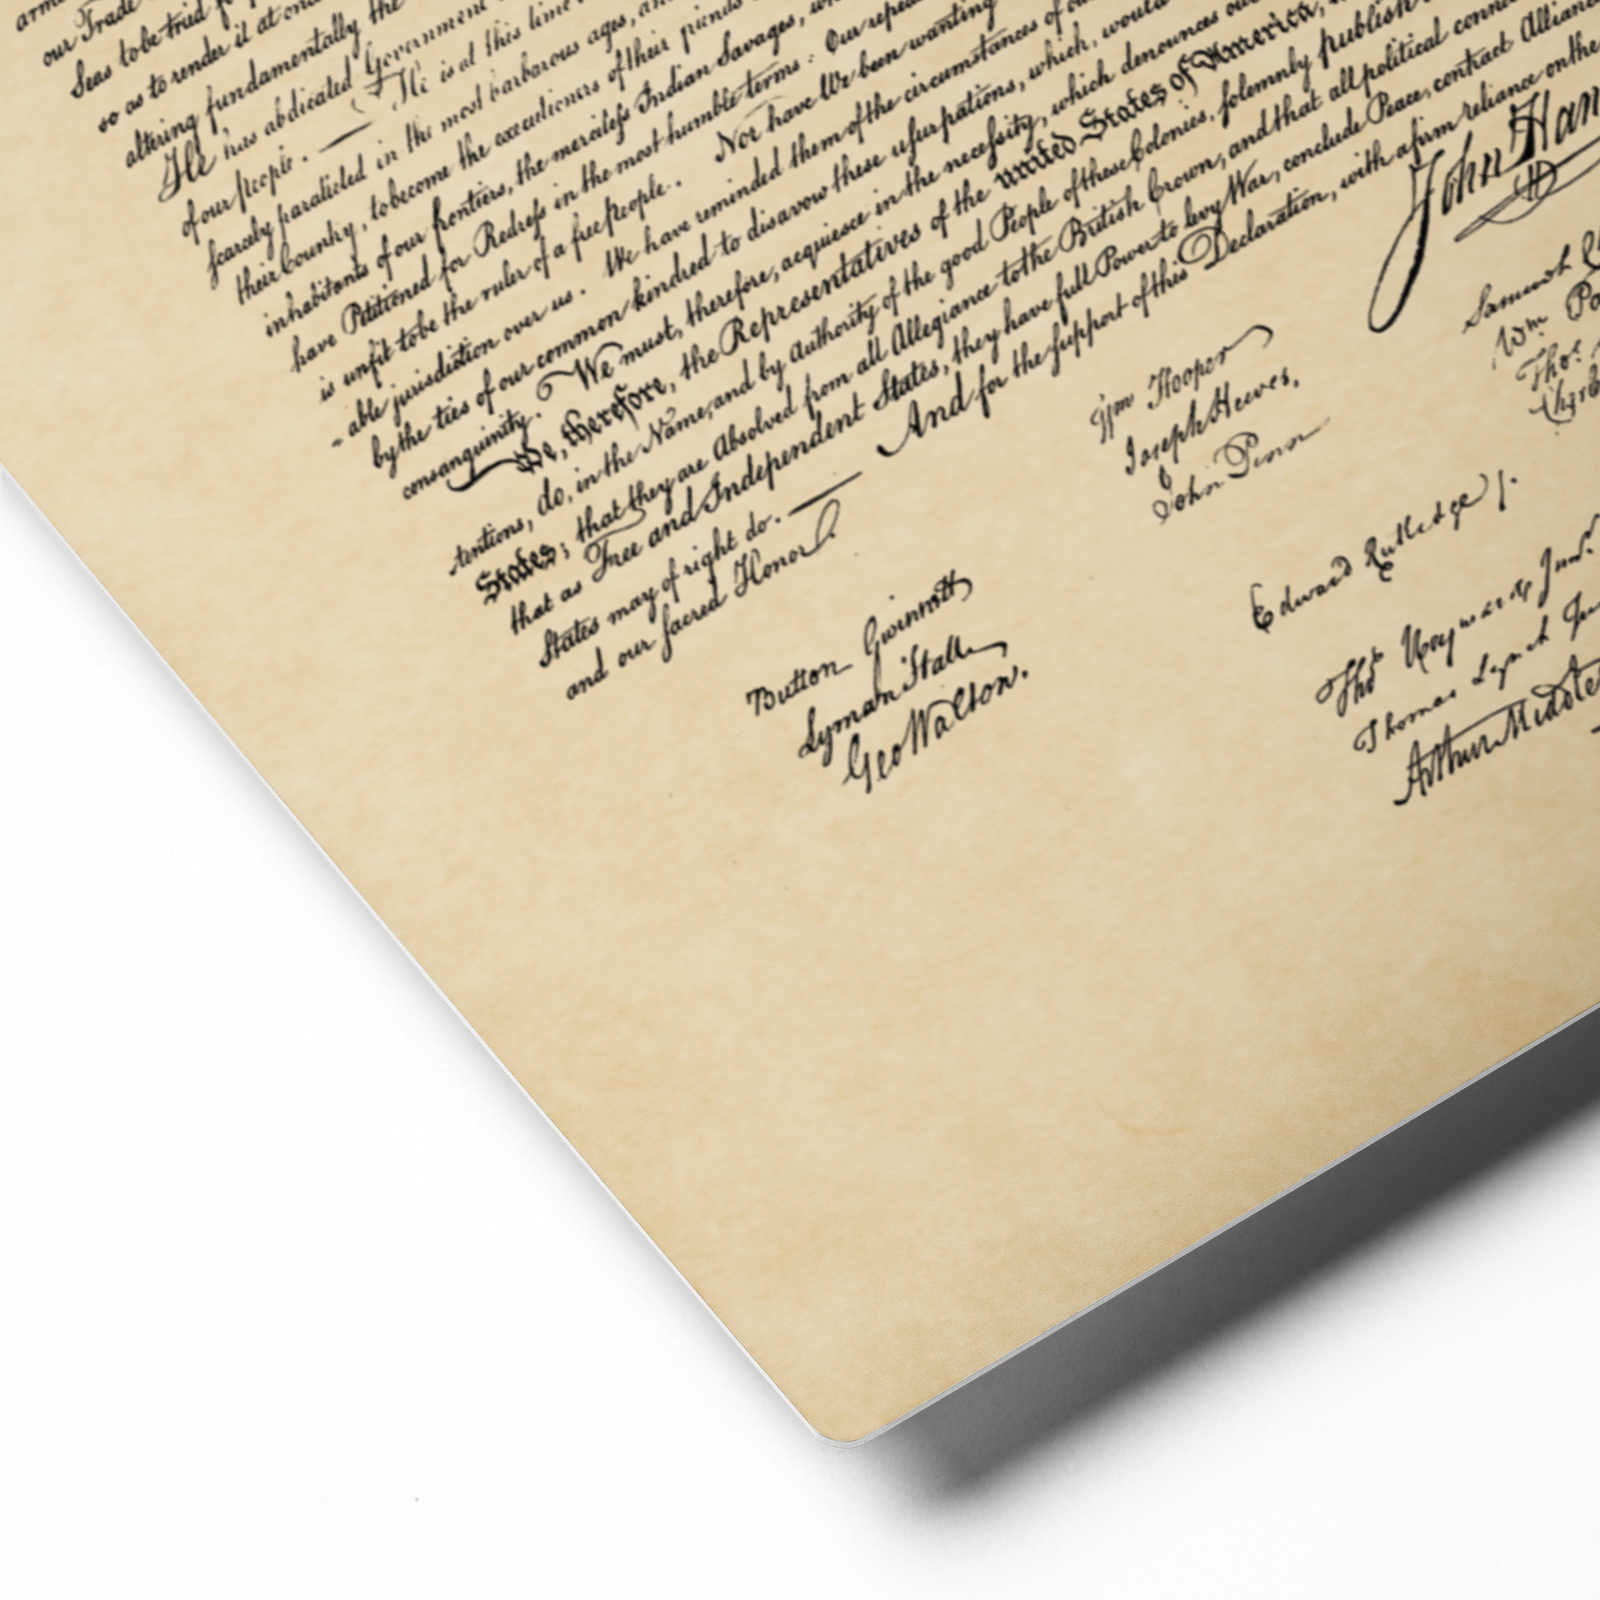 our Trade
Seas to be tried f
so as to render it at on
altering fundamentally the
He has abdicated Government
of our people. — He is at this time
scarcely paralleled in the most barbarous ages, an
their Country, to become the executioners of their friends
inhabitants of our frontiers, the merciless Indian Savages, w
have Petitioned for Redress in the most humble terms: Our repea
is unfit to be the ruler of a free people. Nor have We been wanting
able jurisdiction over us. We have reminded them of the circumstances of ou
by the ties of our common kindred to disavow these usurpations, which, would
consanguinity. We must, therefore, acquiesce in the necessity, which denounces ou
We, therefore, the Representatives of the united States of America,
tentions, do, in the Name, and by Authority of the good People of these Colonies, solemnly publish
States; that they are Absolved from all Allegiance to the British Crown, and that all political conne
that as Free and Independent States, they have full Power to levy War, conclude Peace, contract Allianc
States may of right do. — And for the support of this Declaration, with a firm reliance on the
and our sacred Honor
John Han
Button Gwinnett
Lyman Hall
Geo Walton.
Wm Hooper
Joseph Hewes,
John Penn
Edward Rutledge /.
Thos Heyward Junr.
Thomas Lynch Ju
Arthur Middle
Samuel
Wm Pa
Thos.